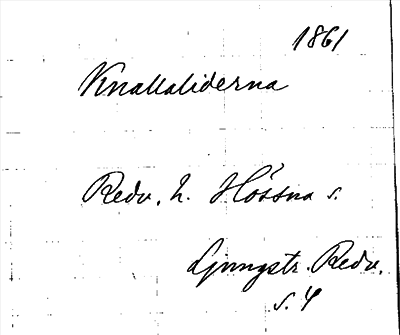 1861
Knallaliderna
Redv. h. Hössna s.
Ljungstr. Redv.
s. 4